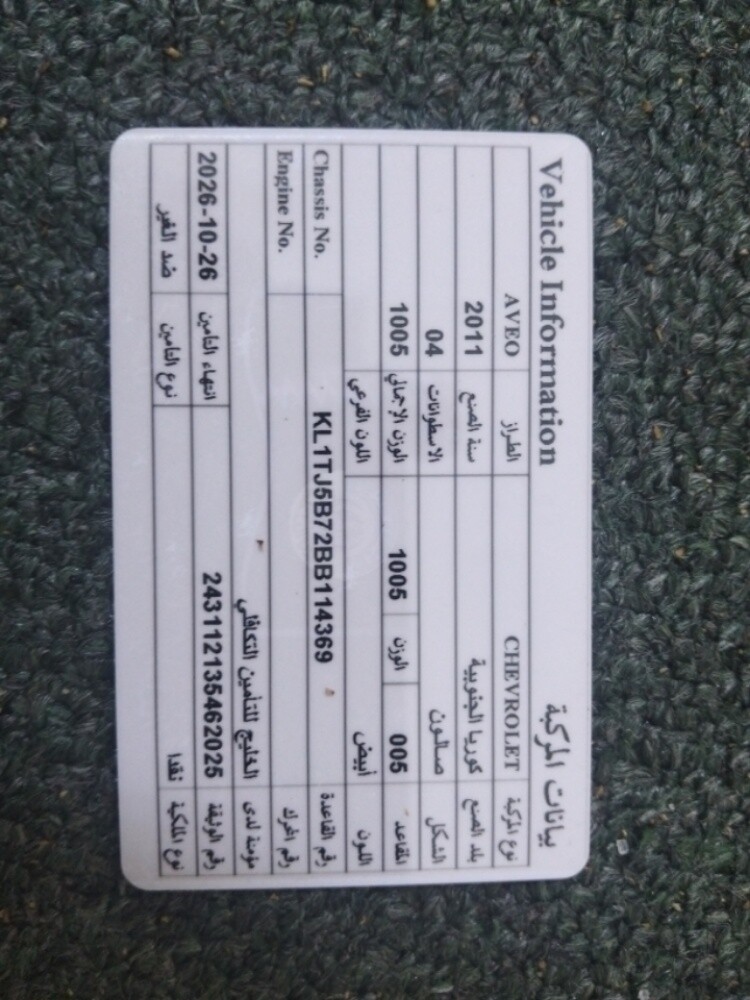 Vehicle Information بيانات المركبة
نوع المركبة CHEVROLET الطراز AVEO
بلد الصنع كوريا الجنوبية سنة الصنع 2011
الشكل صالون الاسطوانات 04
المقاعد 005 الوزن 1005 الوزن الإجمالي 1005
اللون أبيض اللون الفرعي
رقم القاعدة KL1TJ5B72BB114369 Chassis No.
رقم المحرك Engine No.
مؤمنة لدى الخليج للتأمين التكافلي
رقم الوثيقة 243112135462025 انتهاء التامين 2026-10-26
نوع الملكية نقدا نوع التامين ضد الغير